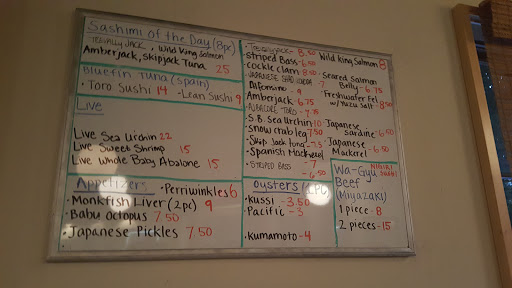 Sashimi of the Day (8pc)
Trevally Jack, Wild King Salmon
Amberjack, Skipjack Tuna 25
Bluefin Tuna (Spain)
· Toro Sushi 14 - Lean Sushi 9
Live
Live Sea Urchin 22
Live Sweet Shrimp 15
Live Whole Baby Abalone 15
Appetizers
· Periwinkles 6
· Monkfish Liver (2pc) 9
· Baby Octopus 7.50
· Japanese Pickles 7.50
· Trevally Jack - 8.50
Striped Bass - 6.50
· Cockle Clam 8.50
- 9
Amberjack 6.75
Albacore Toro - 7.75
S.B. Sea Urchin 10
Snow Crab Leg 7.50
· Skip Jack Tuna - 7.5
· Spanish Mackerel - 7
· Striped Bass - 6.50
Wild King Salmon 8
· Seared Salmon
Belly - 6.75
· Freshwater Eel
w/ Yuzu Salt 8.50
Japanese
Sardine 6.50
· Japanese
Mackerel - 6.50
Oysters (1pc)
· Kussi - 3.50
Pacific - 3
· Kumamoto - 4
Wa-Gyu
Beef
(Miyazaki)
Nigiri Sushi
1 piece - 8
2 pieces - 15